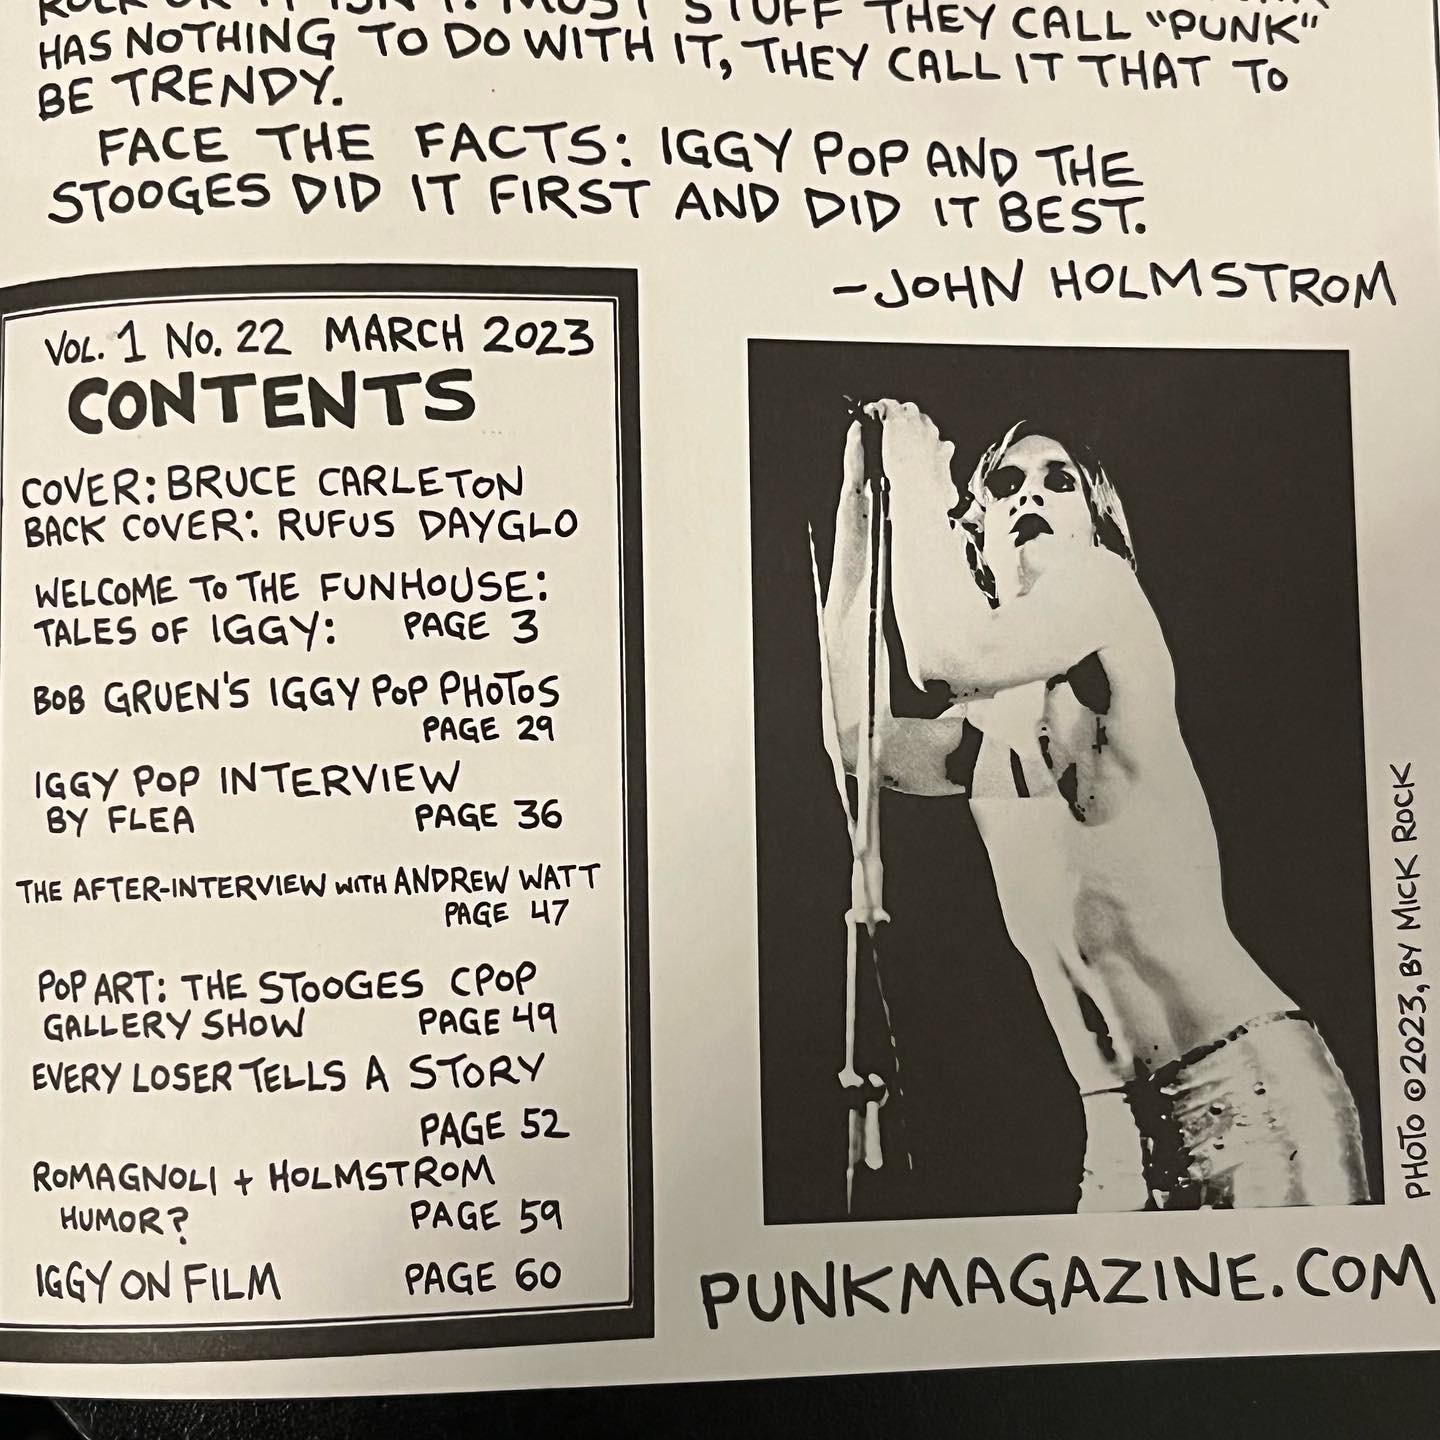 ROCK OR IT ISN'T. MOST STUFF THEY CALL "PUNK"
HAS NOTHING TO DO WITH IT, THEY CALL IT THAT TO
BE TRENDY.
FACE THE FACTS: IGGY POP AND THE
STOOGES DID IT FIRST AND DID IT BEST.
-JOHN HOLMSTROM
VOL. 1 NO. 22 MARCH 2023
CONTENTS
COVER: BRUCE CARLETON
BACK COVER: RUFUS DAYGLO
WELCOME TO THE FUNHOUSE:
TALES OF IGGY: PAGE 3
BOB GRUEN'S IGGY POP PHOTOS
PAGE 29
IGGY POP INTERVIEW
BY FLEA PAGE 36
THE AFTER-INTERVIEW WITH ANDREW WATT
PAGE 47
POP ART: THE STOOGES CPOP
GALLERY SHOW PAGE 49
EVERY LOSER TELLS A STORY
PAGE 52
ROMAGNOLI + HOLMSTROM
HUMOR? PAGE 59
IGGY ON FILM PAGE 60
PHOTO ©2023, BY MICK ROCK
PUNKMAGAZINE.COM